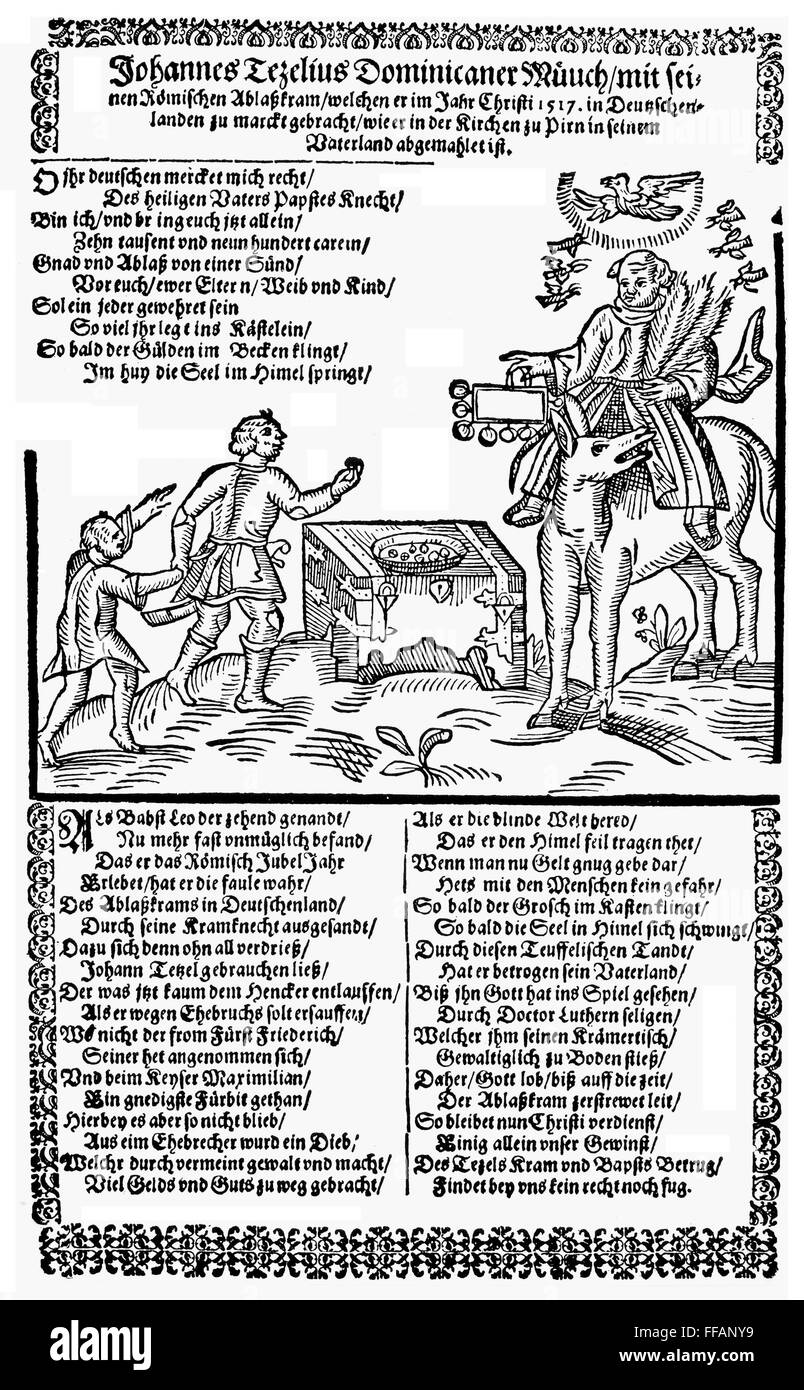 Johannes Tezelius Dominicaner Müuch/mit sei-
nen Römischen Ablaßkram/welchen er im Jahr Christi 1517. in Deutzschen-
landen zu marckt gebracht/wie er in der Kirchen zu Pirn in seinem
Vaterland abgemahlet ist.
O jhr deutschen mercket mich recht/
Des heiligen Vaters Papstes Knecht/
Bin ich/vnd br ing euch jtzt allein/
Zehn tausent vnd neun hundert carein/
Gnad vnd Ablaß von einer Sünd/
Vor euch/ewer Eltern/Weib vnd Kind/
Sol ein jeder gewehret sein
So viel jhr legt ins Kästelein/
So bald der Gülden im Becken klingt/
Im huy die Seel im Himel springt/
Als Babst Leo der zehend genandt/
Nu mehr fast vnmüglich befand/
Das er das Römisch Jubel Jahr
Erlebet/hat er die faule wahr/
Des Ablaßkrams in Deutschenland/
Durch seine Kramknecht ausgesandt/
Dazu sich denn ohn all verdrieß/
Johann Tetzel gebrauchen ließ/
Der was jtzt kaum dem Hencker entlauffen/
Als er wegen Ehebruchs solt ersauffen/
Wo nicht der from Fürst Friederich/
Seiner het angenommen sich/
Vnd beim Keyser Maximilian/
Ein gnedigste Fürbit gethan/
Hierbey es aber so nicht blieb/
Aus eim Ehebrecher wurd ein Dieb/
Welchr durch vermeint gewalt vnd macht/
Viel Gelds vnd Guts zu weg gebracht/
Als er die blinde Welt bered/
Das er den Himel feil tragen thet/
Wenn man nu Gelt gnug gebe dar/
Hets mit den Menschen kein gefahr/
So bald der Grosch im Kasten klingt/
So bald die Seel in Himel sich schwingt/
Durch diesen Teuffelischen Tandt/
Hat er betrogen sein Vaterland/
Biß jhn Gott hat ins Spiel gesehen/
Durch Doctor Luthern seligen/
Welcher jhm seinen Krämertisch/
Gewaltiglich zu Boden stieß/
Daher/Gott lob/biß auff die zeit/
Der Ablaßkram zerstrewet leit/
So bleibet nun Christi verdienst/
Einig allein vnser Gewinst/
Des Tezels Kram vnd Bapsts Betrug/
Findet bey vns kein recht noch fug.
alamy
Image ID: FFANY9
www.alamy.com